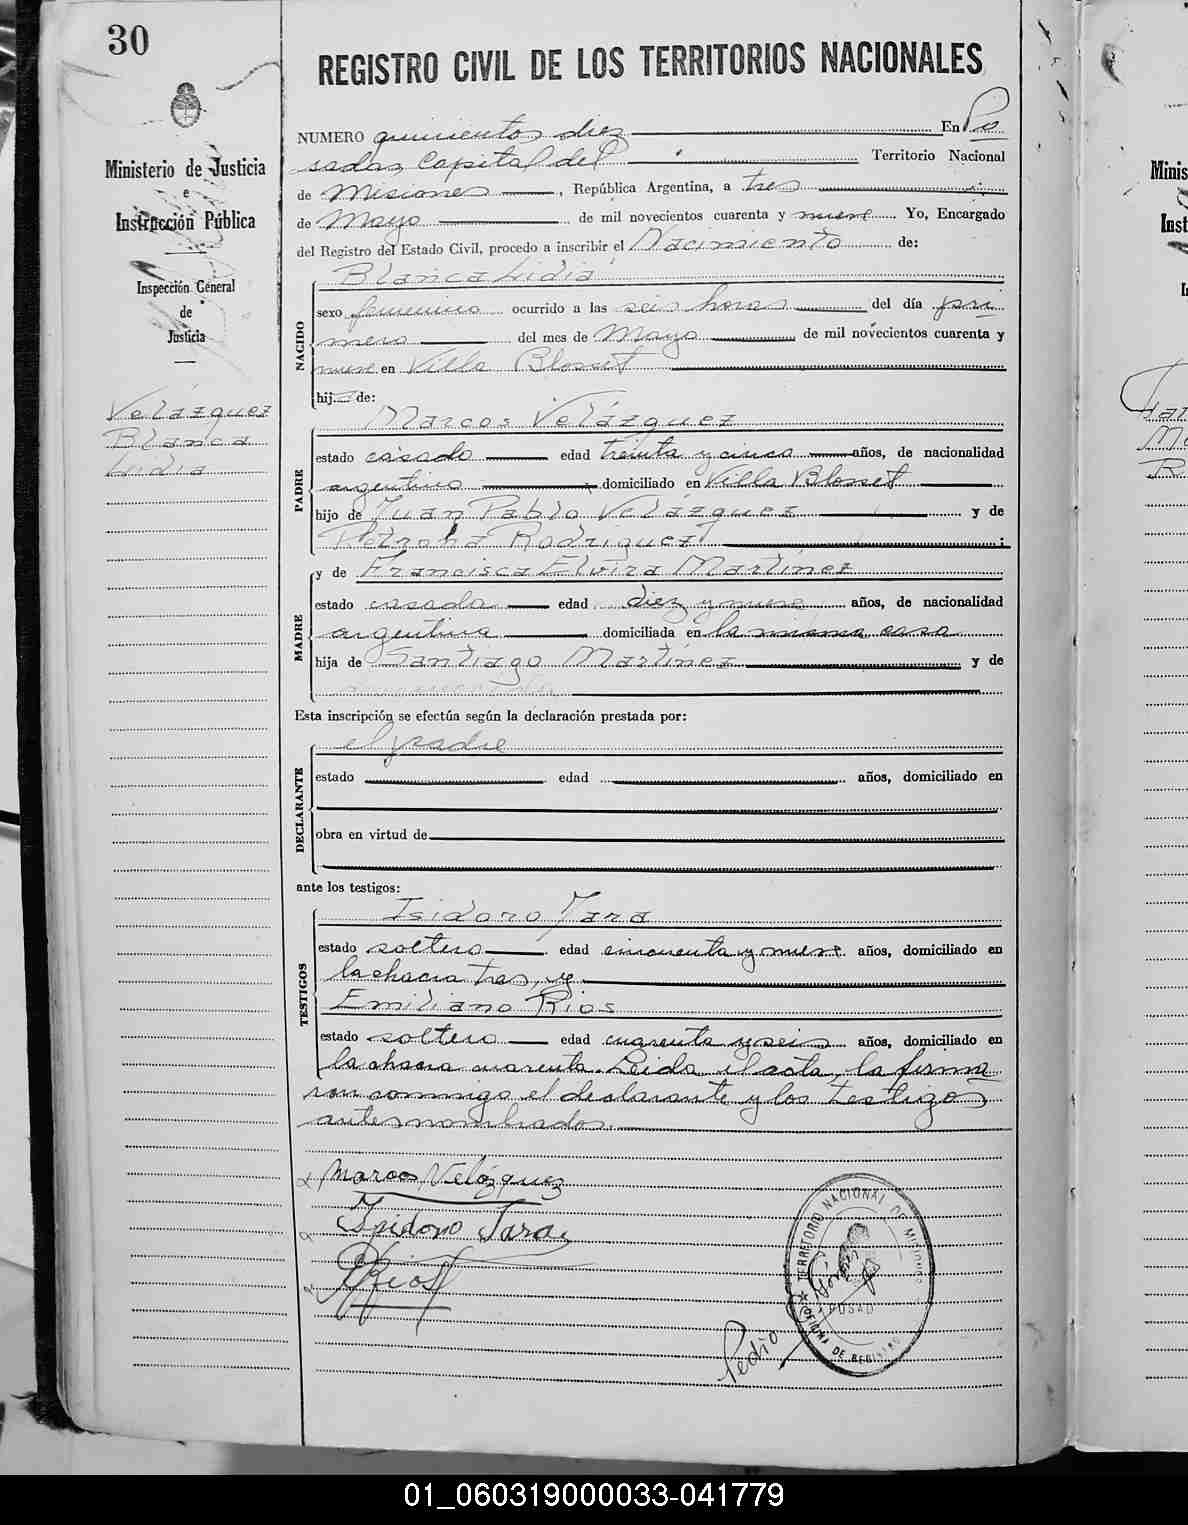 30
REGISTRO CIVIL DE LOS TERRITORIOS NACIONALES
Ministerio de Justicia
e
Instrucción Pública
Inspección General
de
Justicia
Velázquez
Blanca
Lidia
NUMERO quinientos diez En Po
sadas Capital del Territorio Nacional
de Misiones, República Argentina, a tres
de Mayo de mil novecientos cuarenta y nueve Yo, Encargado
del Registro del Estado Civil, procedo a inscribir el Nacimiento de:
NACIDO
Blanca Lidia
sexo femenino ocurrido a las seis horas del día pri
mero del mes de Mayo de mil novecientos cuarenta y
nueve en Villa Blosset
hij de:
PADRE
Marcos Velázquez
estado casado edad treinta y cinco años, de nacionalidad
argentino domiciliado en Villa Blosset
hijo de Juan Pablo Velázquez y de
Rodriguez ;
MADRE
y de Francisca Elvira Martínez
estado casada edad diez y nueve años, de nacionalidad
argentina domiciliada en la misma casa
hija de Santiago Martínez y de
Esta inscripción se efectúa según la declaración prestada por:
DECLARANTE
el padre
estado edad años, domiciliado en
obra en virtud de
ante los testigos:
TESTIGOS
Isidoro Jara
estado soltero edad cincuenta y nueve años, domiciliado en
la chacra tres, y
Emiliano Rios
estado soltero edad cuarenta y seis años, domiciliado en
la chacra cuarenta. Leida el acta, la firma
ron conmigo el declarante y los testigos
antes nombrados.
Marcos Velázquez
Isidoro Jara
ERios
TERRITORIO NACIONAL DE MISIONES
POSADAS
OFICINA DE REGISTRO
Pedro
01_060319000033-041779